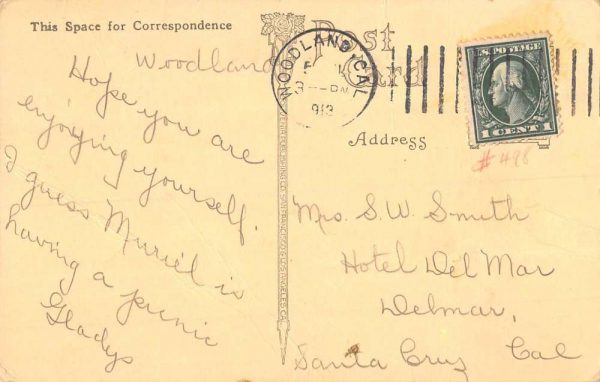 This Space for Correspondence
Post
Card
Woodland
WOODLAND, CAL.
3—PM
1913
U.S. POSTAGE
1 CENT 1
# 498
Hope you are
enjoying yourself.
I guess Muriel is
having a picnic
Gladys
PUBLISHING CO. SAN FRANCISCO & LOS ANGELES, CAL.
Address
Mrs. S.W. Smith
Hotel Del Mar
Delmar,
Santa Cruz Cal